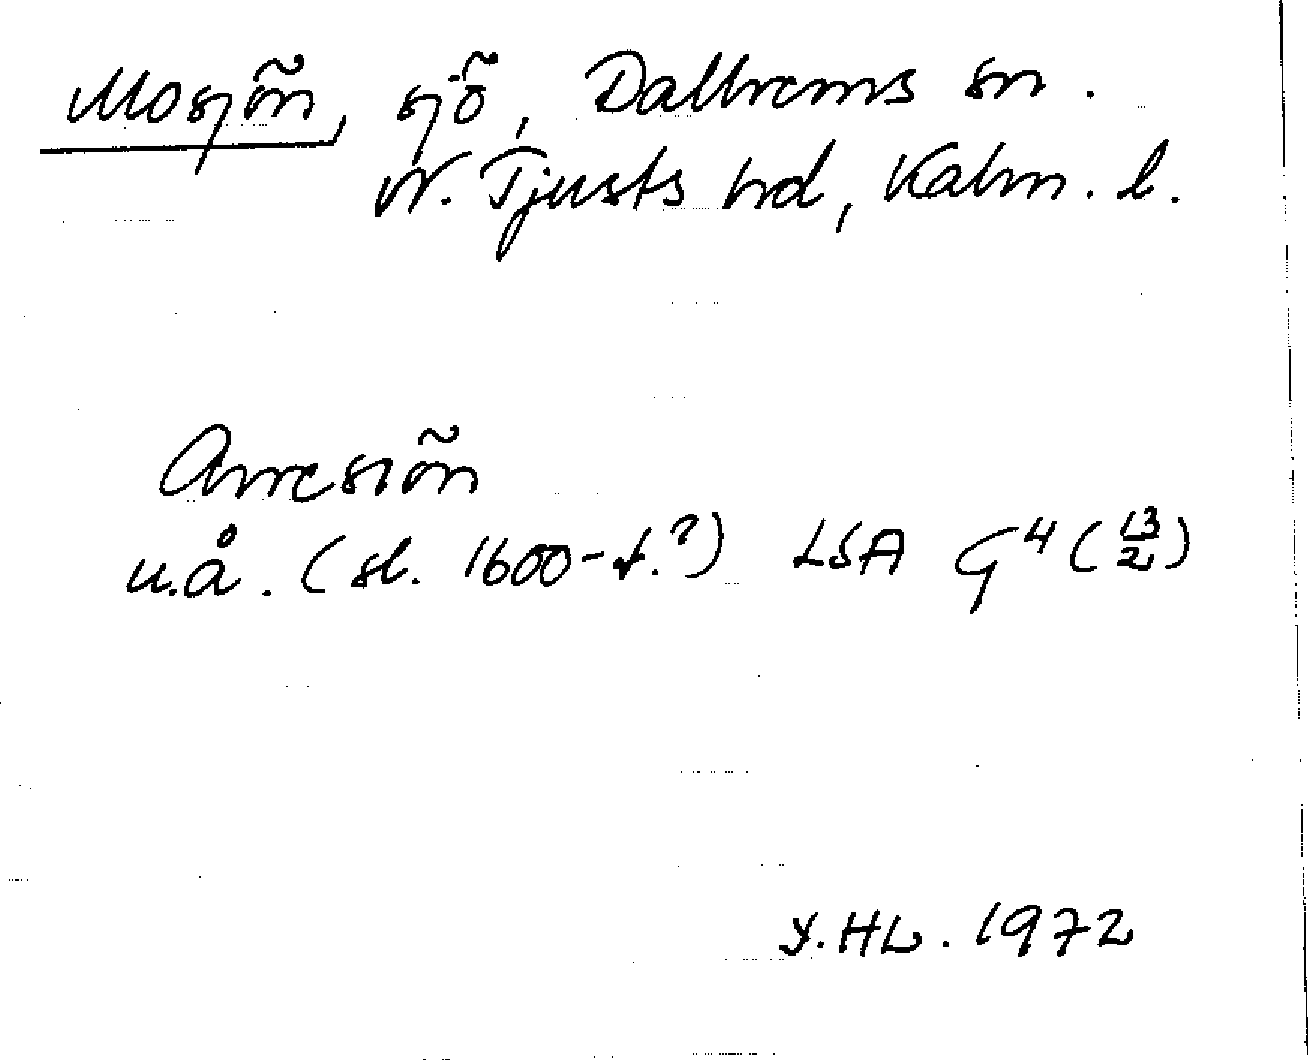 Mosjön, sjö, Dalhems sn.
N. Tjusts hd, Kalm. l.
u.å. (sl. 1600-t.?) LSA G⁴ (13/2)
Y.HL. 1972